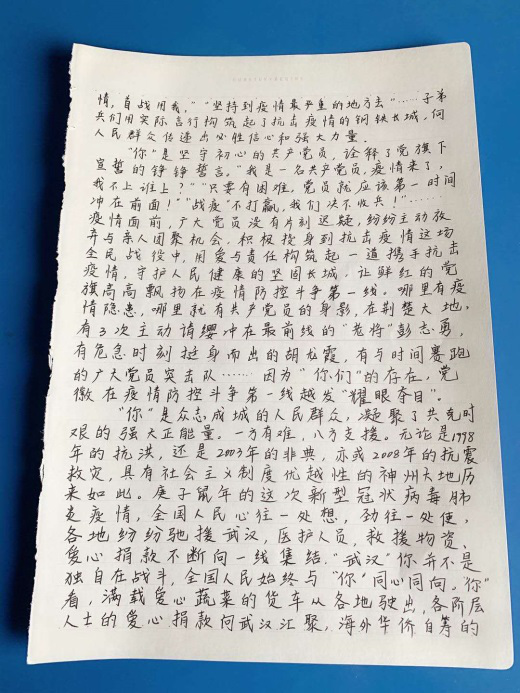 情，首战用我，""坚持到疫情最严重的地方去"……子弟
兵们用实际言行构筑起了抗击疫情的钢铁长城，向
人民群众传递出必胜信心和强大力量。
"你"是坚守初心的共产党员，诠释了党旗下
宣誓的铮铮誓言。"我是一名共产党员，疫情来了，
我不上谁上？""只要有困难，党员就应该第一时间
冲在前面！""战疫"不打赢，我们决不收兵！"……
疫情面前，广大党员没有片刻迟疑，纷纷主动放
弃与亲人团聚机会，积极投身到抗击疫情这场
全民战役中，用爱与责任构筑起一道携手抗击
疫情，守护人民健康的坚固长城，让鲜红的党
旗高高飘扬在疫情防控斗争第一线。哪里有疫
情隐患，哪里就有共产党员的身影，在荆楚大地，
有3次主动请缨冲在最前线的"老将"彭志勇，
有危急时刻挺身而出的胡龙霞，有与时间赛跑
的广大党员突击队……因为"你们"的存在，党
徽在疫情防控斗争第一线越发"耀眼夺目"。
"你"是众志成城的人民群众，凝聚了共克时
艰的强大正能量。一方有难，八方支援。无论是1998
年的抗洪，还是2003年的非典，亦或2008年的抗震
救灾，具有社会主义制度优越性的神州大地历
来如此。庚子鼠年的这次新型冠状病毒肺
炎疫情，全国人民心往一处想，劲往一处使，
各地纷纷驰援武汉，医护人员，救援物资，
爱心捐款不断向一线集结，"武汉"你并不是
独自在战斗，全国人民始终与"你"同心同向。"你"
看，满载爱心蔬菜的货车从各地驶出，各阶层
人士的爱心捐款向武汉汇聚，海外华侨自筹的